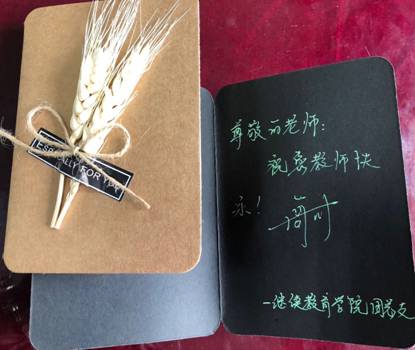 ESPECIALLY FOR YOU
尊敬的老师：
祝您教师快
乐！
一继续教育学院团总支